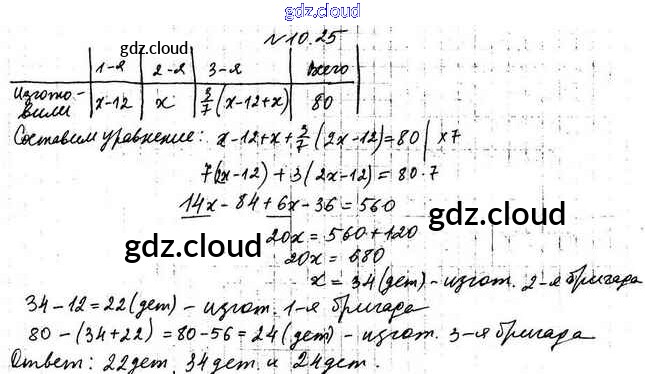 gdz.cloud
№10.25
gdz.cloud
1-я 2-я 3-я всего
Изгото-
вили x-12 x 3/7(x-12+x) 80
Составим уравнение: x-12+x+3/7(2x-12)=80 | ×7
7(2x-12)+3(2x-12)=80·7
14x-84+6x-36=560
gdz.cloud
20x=560+120
gdz.cloud
20x=680
x=34(дет)-изгот. 2-я бригада
34-12=22(дет)-изгот. 1-я бригада
80-(34+22)=80-56=24(дет)-изгот. 3-я бригада
Ответ: 22дет, 34дет. и 24дет.